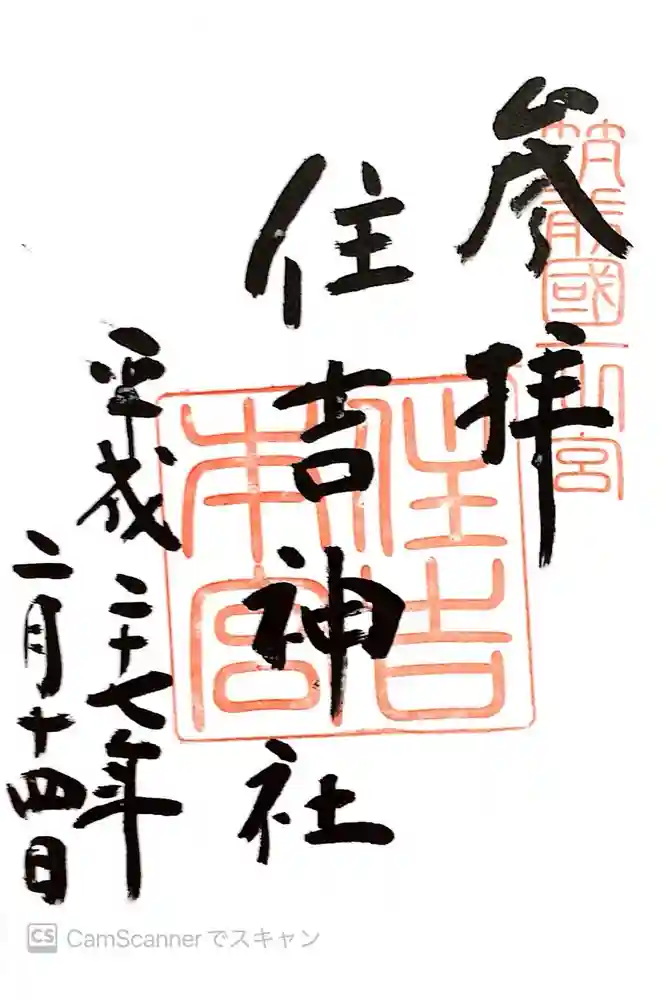 筑前國一之宮
参拝
住吉神社
住吉本宮
平成二十七年
二月十四日
CS CamScannerでスキャン